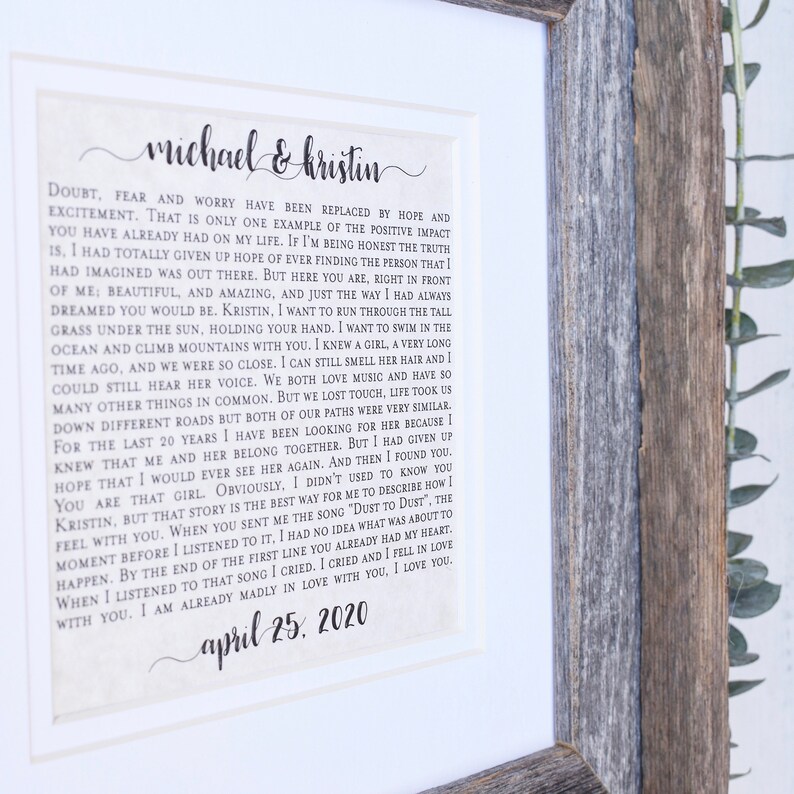 michael & kristin
Doubt, fear and worry have been replaced by hope and
excitement. That is only one example of the positive impact
you have already had on my life. If I'm being honest the truth
is, I had totally given up hope of ever finding the person that I
had imagined was out there. But here you are, right in front
of me; beautiful, and amazing, and just the way I had always
dreamed you would be. Kristin, I want to run through the tall
grass under the sun, holding your hand. I want to swim in the
ocean and climb mountains with you. I knew a girl, a very long
time ago, and we were so close. I can still smell her hair and I
could still hear her voice. We both love music and have so
many other things in common. But we lost touch, life took us
down different roads but both of our paths were very similar.
For the last 20 years I have been looking for her because I
knew that me and her belong together. But I had given up
hope that I would ever see her again. And then I found you.
You are that girl. Obviously, I didn't used to know you
Kristin, but that story is the best way for me to describe how I
feel with you. When you sent me the song "Dust to Dust", the
moment before I listened to it, I had no idea what was about to
happen. By the end of the first line you already had my heart.
When I listened to that song I cried. I cried and I fell in love
with you. I am already madly in love with you, I love you.
april 25, 2020